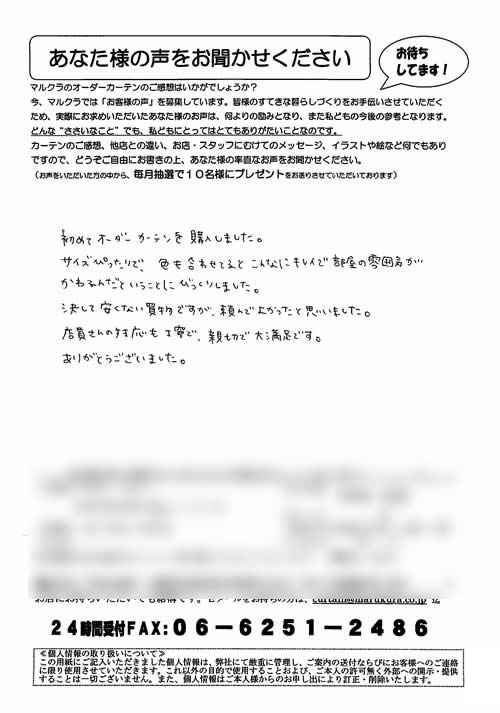 あなた様の声をお聞かせください
お待ち
してます！
マルクラのオーダーカーテンのご感想はいかがでしょうか？
今、マルクラでは「お客様の声」を募集しています。皆様のすてきな暮らしづくりをお手伝いさせていただく
ため、実際にお求めいただいたあなた様のお声は、何よりの励みとなり、また私どもの今後の参考となります。
どんな“ささいなこと”でも、私どもにとってはとてもありがたいことなのです。
カーテンのご感想、他店との違い、お店・スタッフにむけてのメッセージ、イラストや絵など何でもあり
ですので、どうぞご自由にお書きの上、あなた様の率直なお声をお聞かせください。
（お声をいただいた方の中から、毎月抽選で１０名様にプレゼントをお送りさせていただいております）
初めてオーダーカーテンを購入しました。
サイズぴったりで、色も合わせてると こんなにキレイで部屋の雰囲気が
かわるんだということにびっくりしました。
決して安くない買物ですが、頼んで良かったと思いました。
店員さんの対応も丁寧で、親切で大満足です。
ありがとうございました。
お店にお持ちいただいても結構です。Ｅメールをお持ちの方は、curtain@marukura.co.jp
２４時間受付FAX：０６－６２５１－２４８６
≪個人情報の取り扱いについて≫
この用紙にご記入いただきました個人情報は、弊社にて厳重に管理し、ご案内の送付ならびにお客様へのご連絡
に限り使用させていただきます。これ以外の目的で使用することおよび、ご本人の許可無く外部への開示・提供
することは一切ございません。また、個人情報はご本人様からのお申し出により訂正・削除いたします。